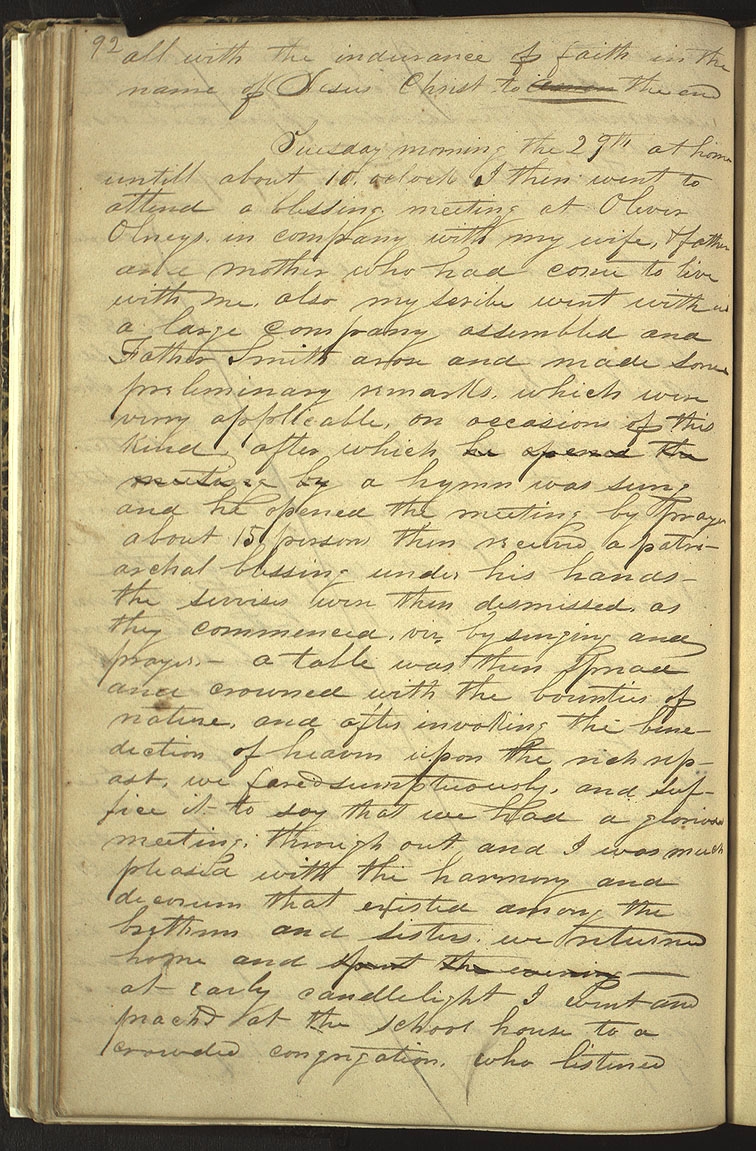 92
all with the indurance of faith in the
name of Jesus Christ to the end
Tuesday morning the 29th at home
untill about 10, oclock I then went to
attend a blessing meeting at Oliver
Olneys. in company with my wife, & father
and mother who had come to live
with me, also my scribe went with us
a large company assembled and
Father Smith arose and made some
preliminary remarks, which were
verry applicable, on occasions of this
kind, after which he opened the
meeting by a hymn was sung
and he opened the meeting by prayer
about 15 persons then received a patri-
archal blessing under his hands-
the servises were then dismissed, as
they commenced, viz, by singing and
prayer.- a table was then spread
and crowned with the bounties of
nature, and after invoking the bene-
diction of heaven upon the rich rep-
ast, we fared sumptuously, and suf-
fice it to say that we had a glorious
meeting, through out and I was much
pleased with the harmony and
decorum that existed among the
brethren and sisters, we returned
home and spent the evening —
at early candlelight I went and
preachd at the school house to a
crowded congregation, who listened